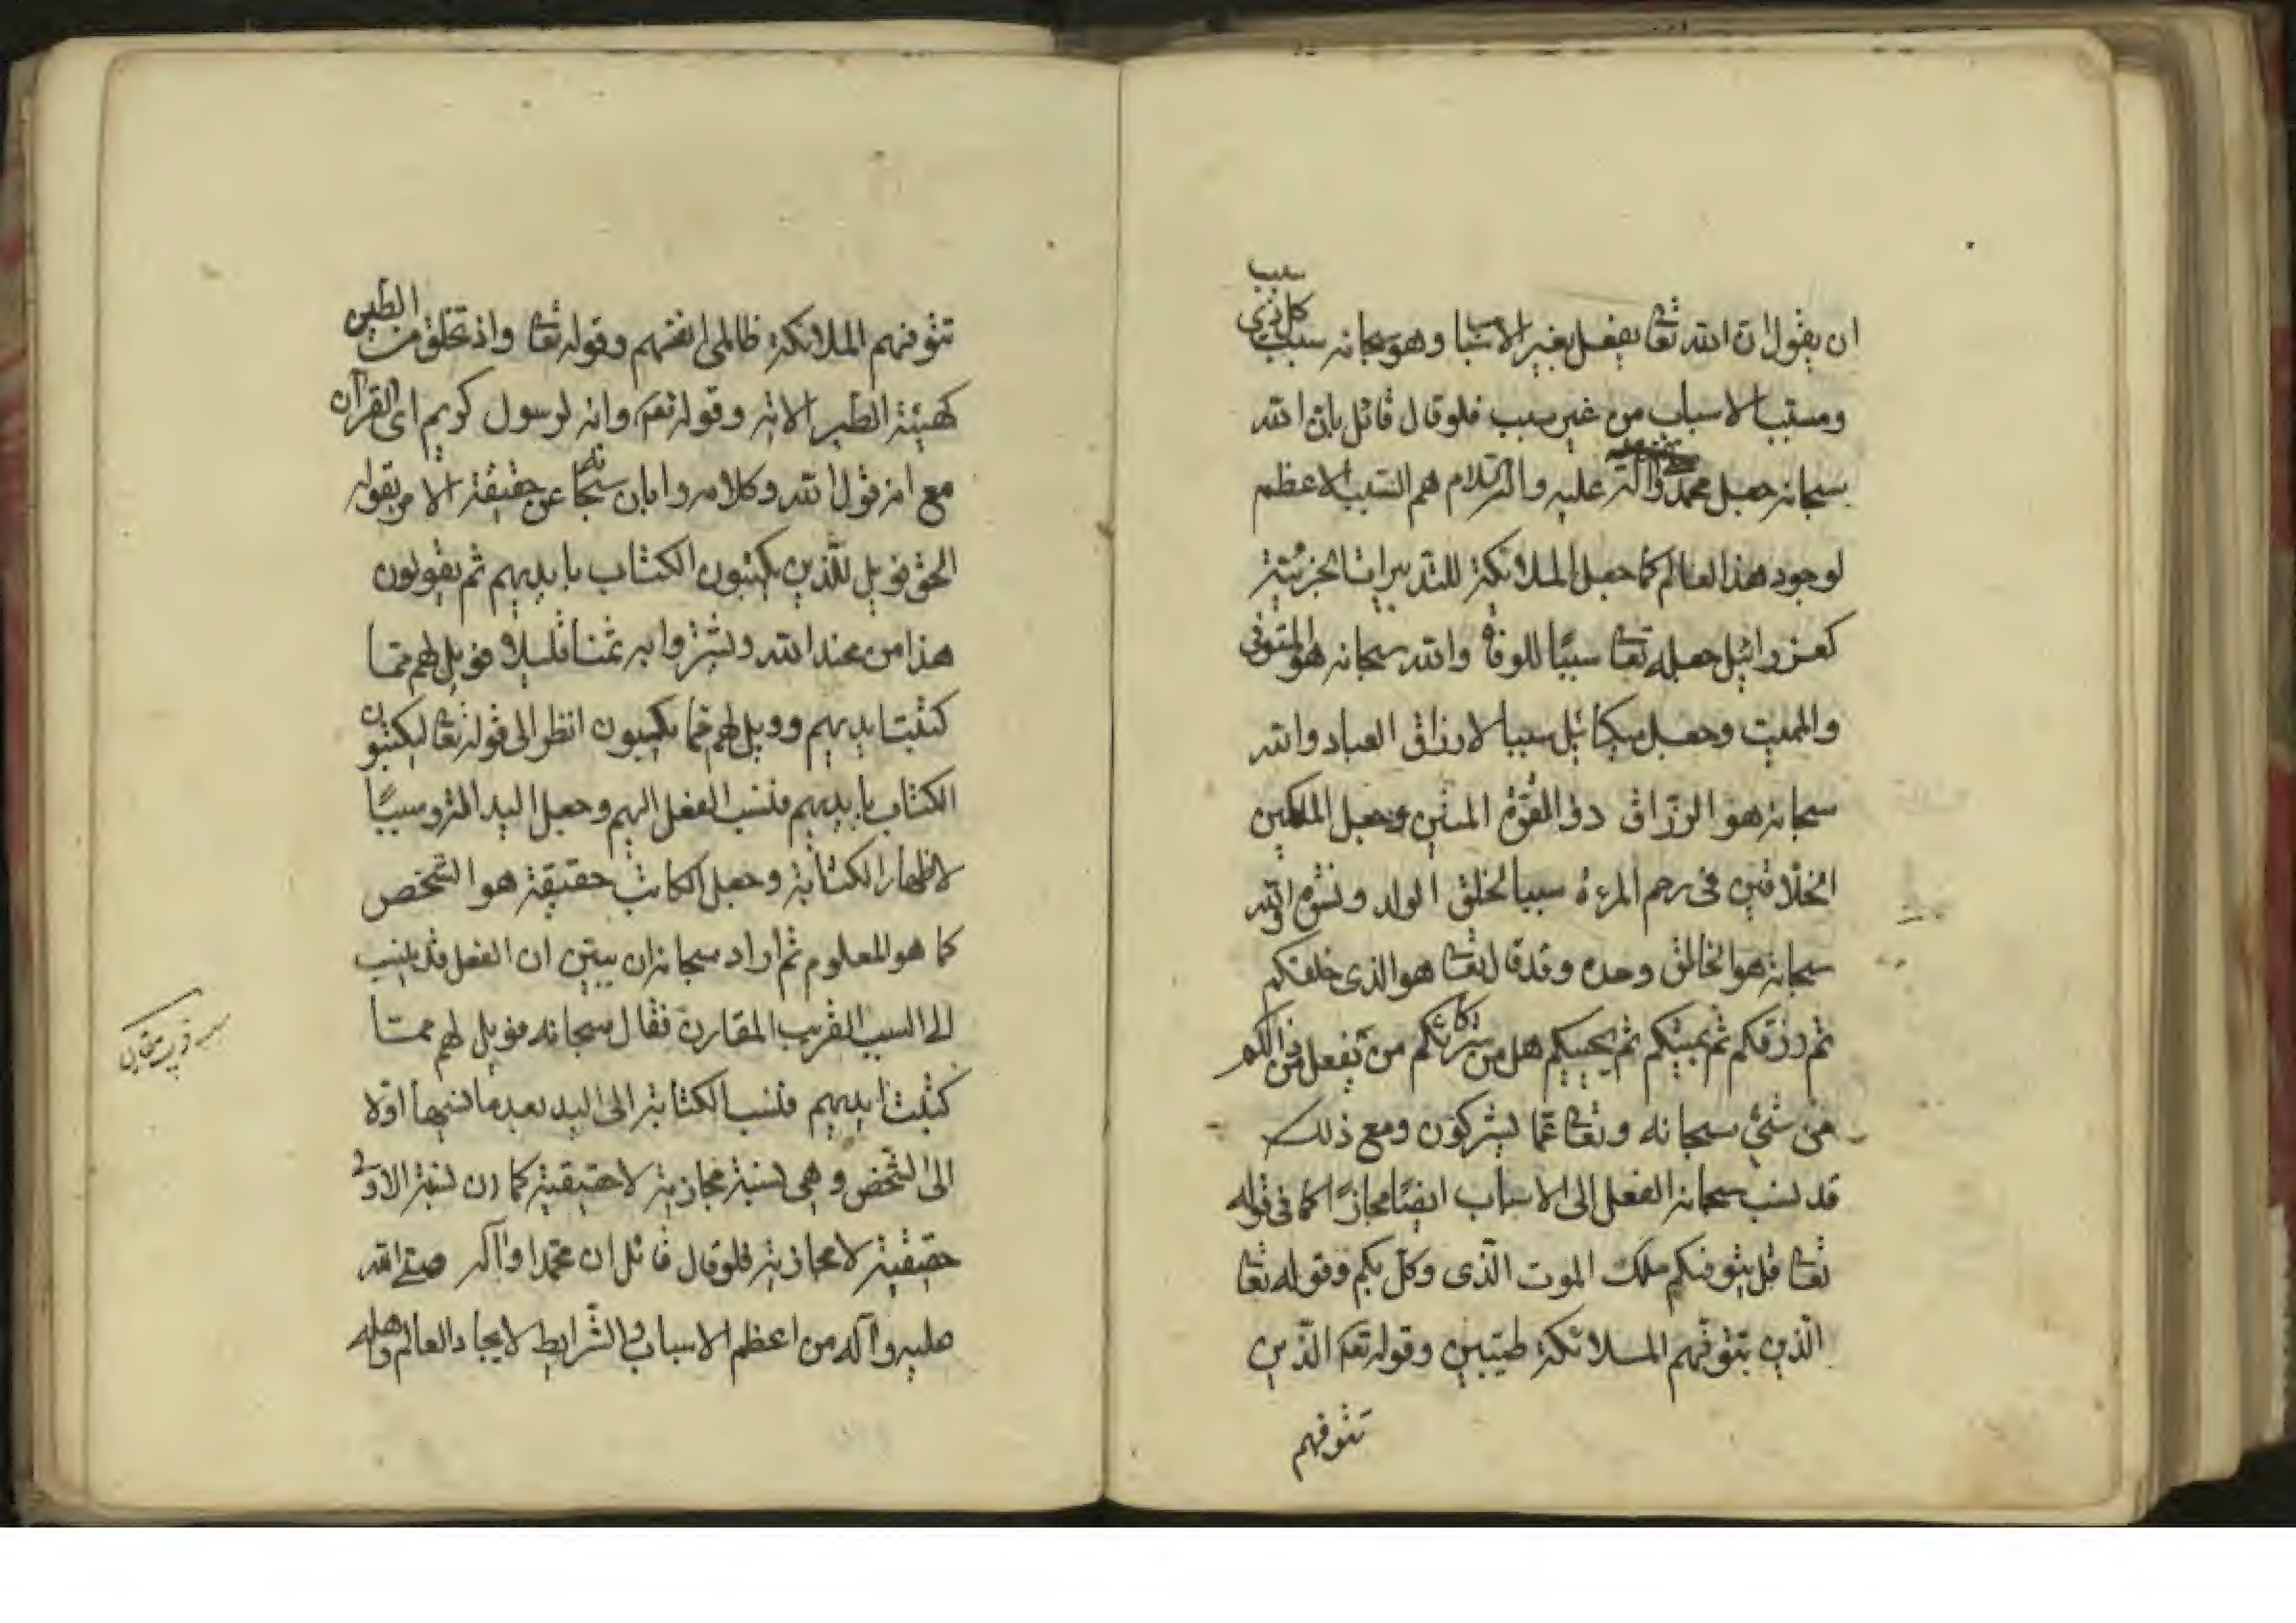 ان يقول ان الله تعا يفعل بغير الاسباب وهو سبحانه سبب كل ذي سبب
ومسبب الاسباب من غير سبب فلو قال قائل بان الله
سبحانه جعل محمد وآله عليه و السلام هم السبب الاعظم
لوجود هذا العالم كما جعل الملائكة للتدبيرات الجزئية
كعزرائيل جعله تعا سببًا للوفاة والله سبحانه هو المتوفى
والمميت وجعل ميكائيل سببا لارزاق العباد والله
سبحانه هو الرزاق ذو القوة المتين وجعل الملكين
الخلاقين فى رحم المرءة سببا لخلق الولد والله
سبحانه هو الخالق وحده وقد قال تعا هو الذى خلقكم
ثم رزقكم ثم يميتكم ثم يحييكم هل من شركائكم من يفعل من ذالكم
من شئ سبحانه وتعا عما يشركون ومع ذلك
قد نسب سبحانه الفعل الى الاسباب ايضًا مجازًا كما فى قوله
تعا قل يتوفيكم ملك الموت الّذى وكّل بكم وقوله تعا
الّذين تتوفّيهم الملائكة طيّبين وقوله تعم الذّين
تتوفيهم
تتوفيهم الملائكة ظالمى انفسهم وقوله تعا واذ تخلق من الطين
كهيئة الطير الاية وقوله تعم وانه لرسول كريم اى القرآن
مع انه قول الله وكلامه وابان سبحانه عن حقيقة الامر بقوله
الحق فويل للّذين يكتبون الكتاب بايديهم ثم يقولون
هذا من عند الله ليشتروا به ثمنا قليلا فويل لهم ممّا
كتبت ايديهم وويل لهم مما يكسبون انظر الى قوله تعا يكتبون
الكتاب بايديهم فنسب الفعل اليهم وجعل اليد سببًا
لاظهار الكتابة وجعل الكاتب حقيقة هو الشّخص
كما هو المعلوم ثم اراد سبحانه ان يبيّن ان الفعل قد ينسب
الى السبب القريب المقارن فقال سبحانه فويل لهم ممتا
كتبت ايديهم فنسب الكتابة الى اليد بعد ما نسبها اوّلا
الى الشّخص وهى نسبة مجازية لا حقيقية كما ان نسبة الاولى
حقيقية لا مجازية فلو قال قائل ان محمّدا وآله صلى الله
عليه وآله من اعظم الاسباب والشّرايط لايجاد العالم